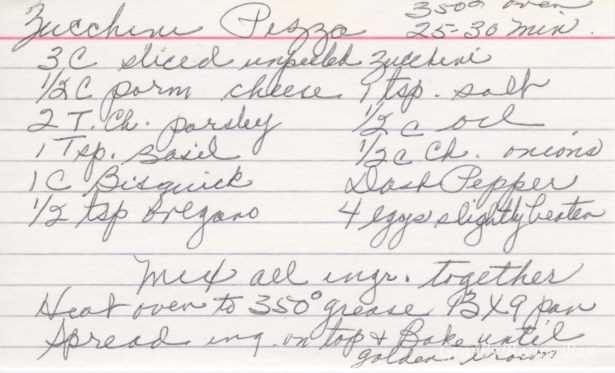 Zucchini Pizza 350° oven
25-30 min.
3 C sliced unpeeled zucchini
1/2 C parm cheese 1 tsp. salt
2 T. Ch. parsley 1/2 c oil
1 Tsp. Basil 1/2 c Ch. onions
1 C Bisquick Dash Pepper
1/2 tsp oregano 4 eggs slightly beaten
Mix all ingr. together
Heat over to 350° grease 13X9 pan
Spread ing. on top & Bake until
golden brown